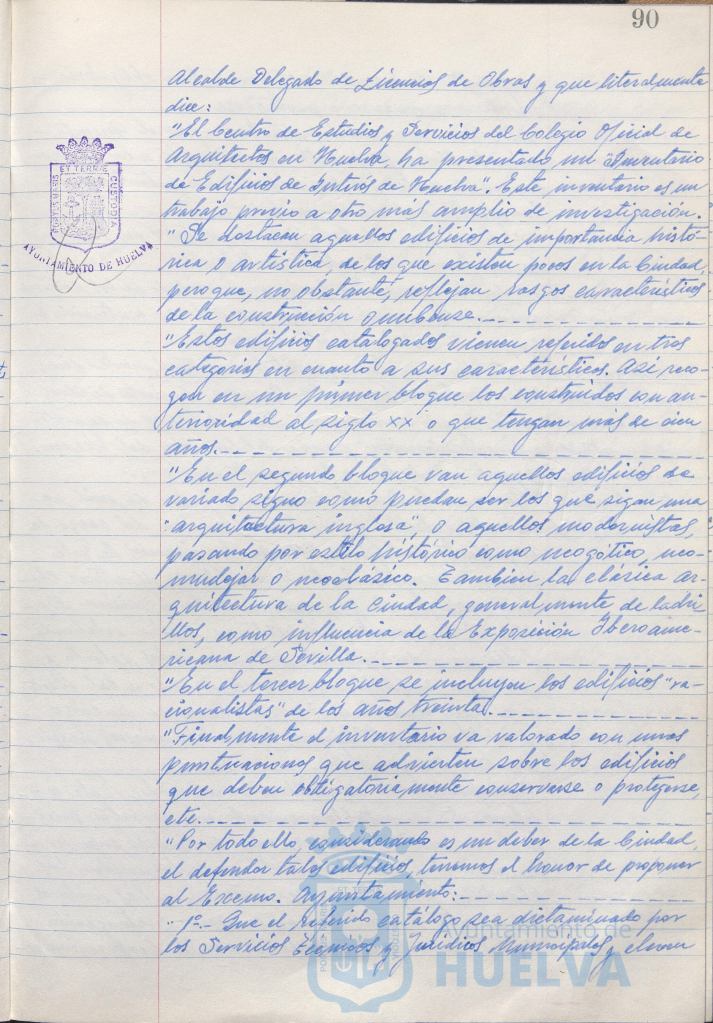 90
Alcalde Delegado de Licencias de Obras y que literalmente
dice:
"El Centro de Estudios y Servicios del Colegio Oficial de
Arquitectos en Huelva, ha presentado un "Inventario
de Edificios de Interés de Huelva". Este inventario es un
trabajo previo a otro más amplio de investigación.
"Se destacan aquellos edificios de importancia histó-
rica o artística, de los que existen pocos en la Ciudad,
pero que, no obstante, reflejan rasgos característicos
de la construcción onubense.
"Estos edificios catalogados vienen referidos en tres
categorías en cuanto a sus características. Así reco-
gen en un primer bloque los construidos con an-
terioridad al siglo XX o que tengan más de cien
años.
"En el segundo bloque van aquellos edificios de
variado signo como puedan ser los que sigan una
"arquitectura inglesa", o aquellos modernistas,
pasando por estilo histórico como neogótico, neo-
mudejar o neoclásico. Tambien la clásica ar-
quitectura de la Ciudad, generalmente de ladri-
llos, como influencia de la Exposición Iberoame-
ricana de Sevilla.
"En el tercer bloque se incluyen los edificios "ra-
cionalistas" de los años treinta.
"Finalmente el inventario va valorado con unas
puntuaciones que advierten sobre los edificios
que deben obligatoriamente conservarse o protegerse,
etc.
"Por todo ello, considerando es un deber de la Ciudad,
el defender tales edificios, tenemos el honor de proponer
al Excmo. Ayuntamiento:
"1º.- Que el referido catálogo sea dictaminado por
los Servicios Técnicos y Jurídicos Municipales y eleven
PORTUS MARIS
ET TERRAE
CUSTODIA
AYUNTAMIENTO DE HUELVA
Ayuntamiento de
HUELVA